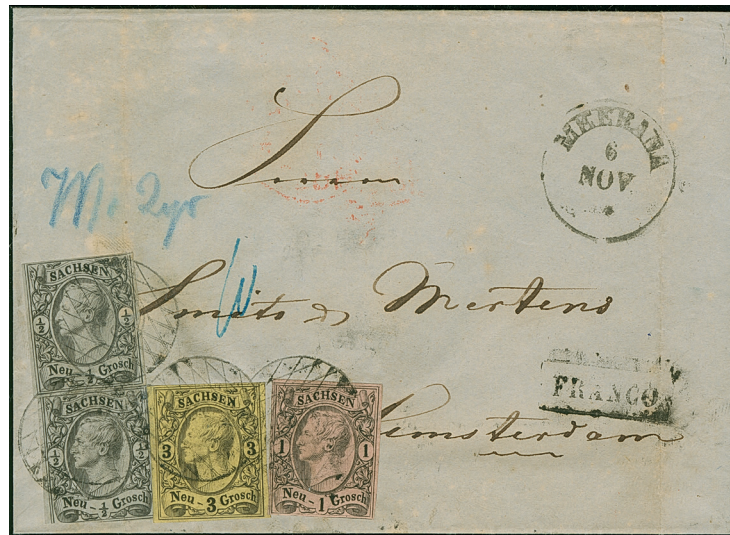 MEERANE
6
NOV
Herrn
W. 2 gr
Smits & Mertens
FRANCO
Amsterdam
SACHSEN
½ ½
Neu-½ Grosch
SACHSEN
½ ½
Neu-½ Grosch
SACHSEN
3 3
Neu-3 Grosch
SACHSEN
1 1
Neu-1 Grosch